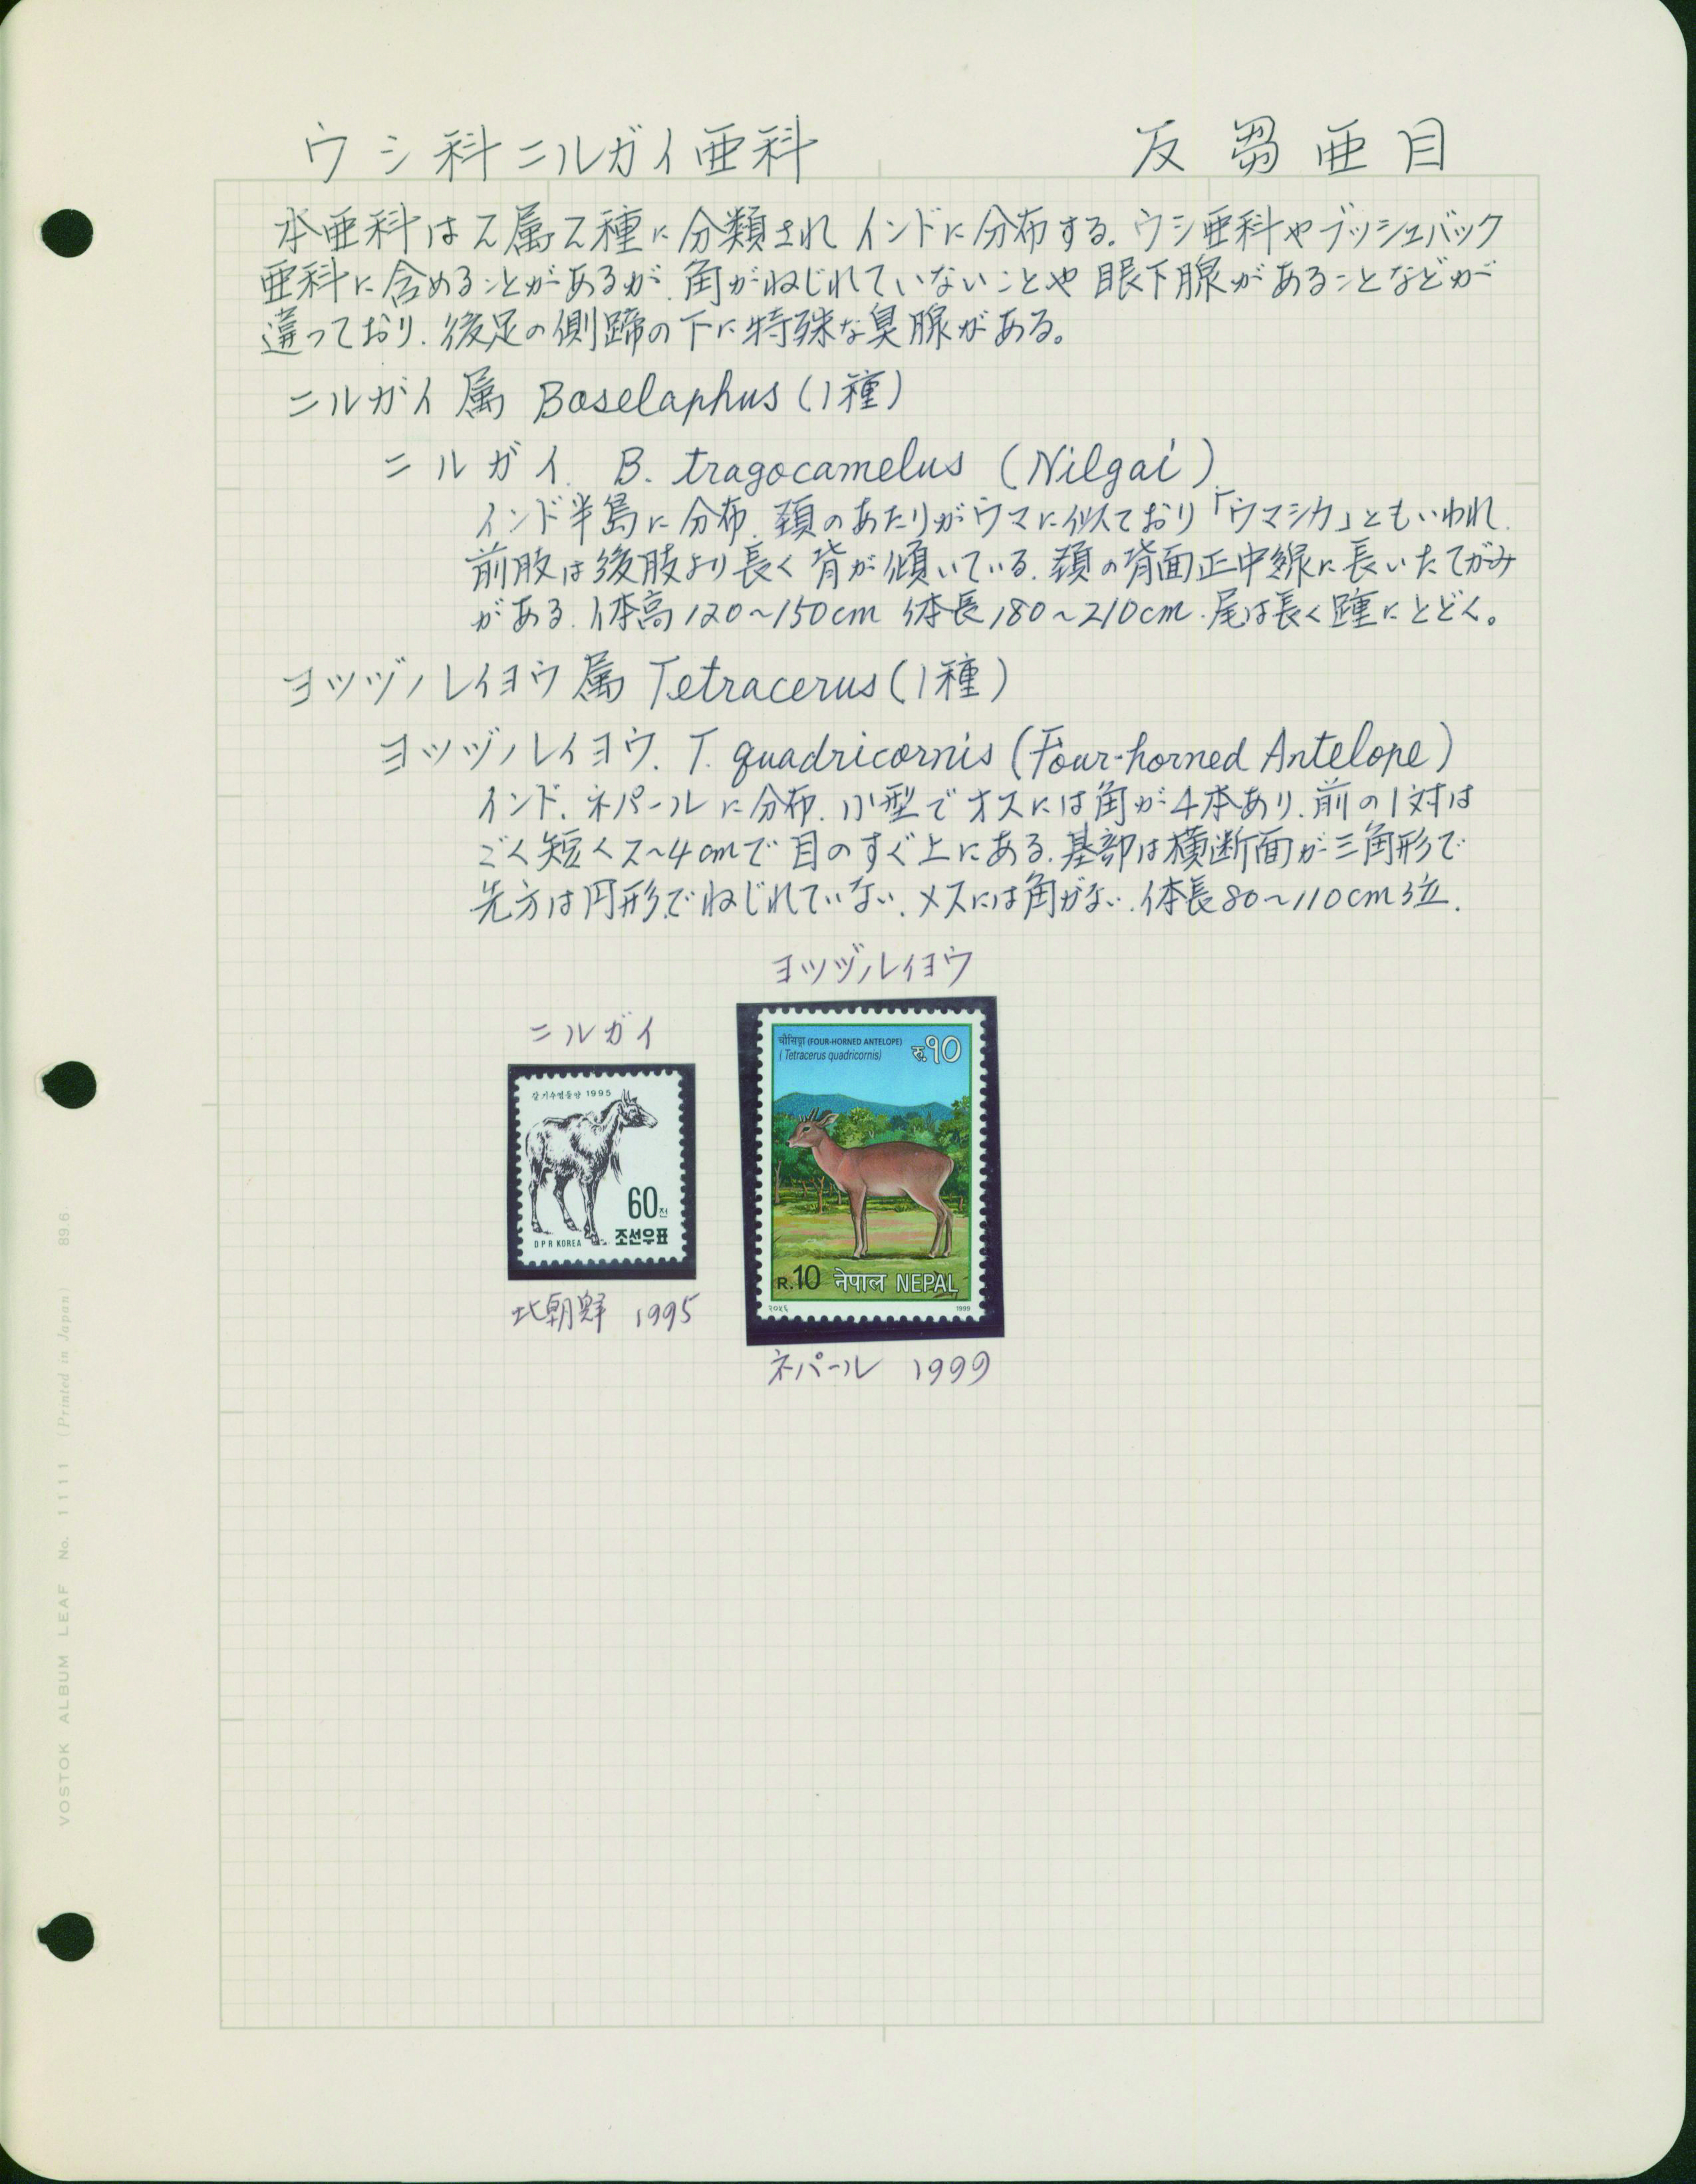 ウシ科ニルガイ亜科
反芻亜目
本亜科は2属2種に分類され インドに分布する. ウシ亜科やブッシュバック
亜科に含めることがあるが. 角がねじれていないことや 眼下腺があることなどが
違っており. 後足の側蹄の下に特殊な臭腺がある。
ニルガイ属 Boselaphus (1種)
ニルガイ. B. tragocamelus (Nilgai)
インド半島に分布. 頚のあたりがウマに似ており「ウマシカ」ともいわれ.
前肢は後肢より長く背が傾いている. 頚の背面正中線に長いたてがみ
がある. 体高120~150cm 体長180~210cm. 尾は長く踵にとどく。
ヨツヅノレイヨウ属 Tetracerus (1種)
ヨツヅノレイヨウ. T. quadricornis (Four-horned Antelope)
インド. ネパールに分布. 小型でオスには角が4本あり. 前の1対は
ごく短く2~4cmで目のすぐ上にある. 基部は横断面が三角形で
先方は円形でねじれていない. メスには角がない. 体長80~110cm位.
ヨツヅノレイヨウ
ニルガイ
चौसिङ्गा (FOUR-HORNED ANTELOPE)
(Tetracerus quadricornis)
रु.१०
1995
60전
DPR KOREA 조선우표
R.10 नेपाल NEPAL
२०५६ 1999
北朝鮮 1995
ネパール 1999
VOSTOK ALBUM LEAF No. 1111 (Printed in Japan) 89.6